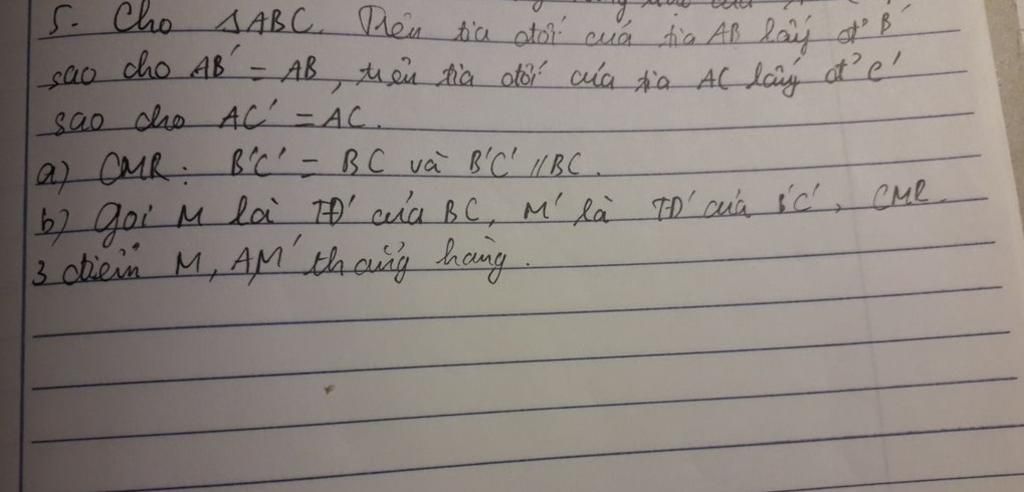 5. Cho ΔABC. Trên tia đối của tia AB lấy đ' B'
sao cho AB' = AB, trên tia đối của tia AC lấy đ' C'
sao cho AC' = AC.
a) CMR: B'C' = BC và B'C' // BC.
b) Gọi M là TĐ' của BC, M' là TĐ' của B'C', CMR
3 điểm M, A, M' thẳng hàng.